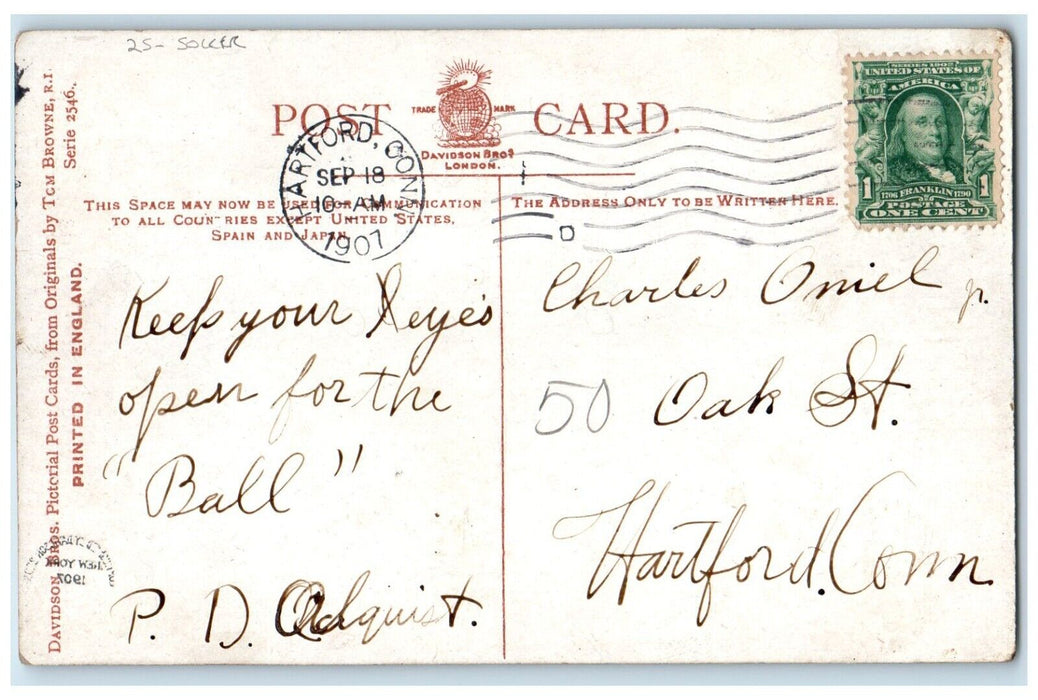 25- SOCCER
POST CARD.
TRADE MARK
DAVIDSON BROS
LONDON.
HARTFORD, CONN
SEP 18
10-AM
1907
D
SERIES 1902
UNITED STATES OF
AMERICA
1 1
1706 FRANKLIN 1790
POSTAGE
ONE CENT
THIS SPACE MAY NOW BE USED FOR COMMUNICATION
TO ALL COUNTRIES EXCEPT UNITED STATES,
SPAIN AND JAPAN.
THE ADDRESS ONLY TO BE WRITTEN HERE.
DAVIDSON BROS. Pictorial Post Cards, from Originals by TOM BROWNE, R.I.
Serie 2546.
PRINTED IN ENGLAND.
Keep your eye's
open for the
"Ball"
P. D. Adquist.
Charles Oniel jr.
50 Oak St.
Hartford. Conn
NEW YORK
1907